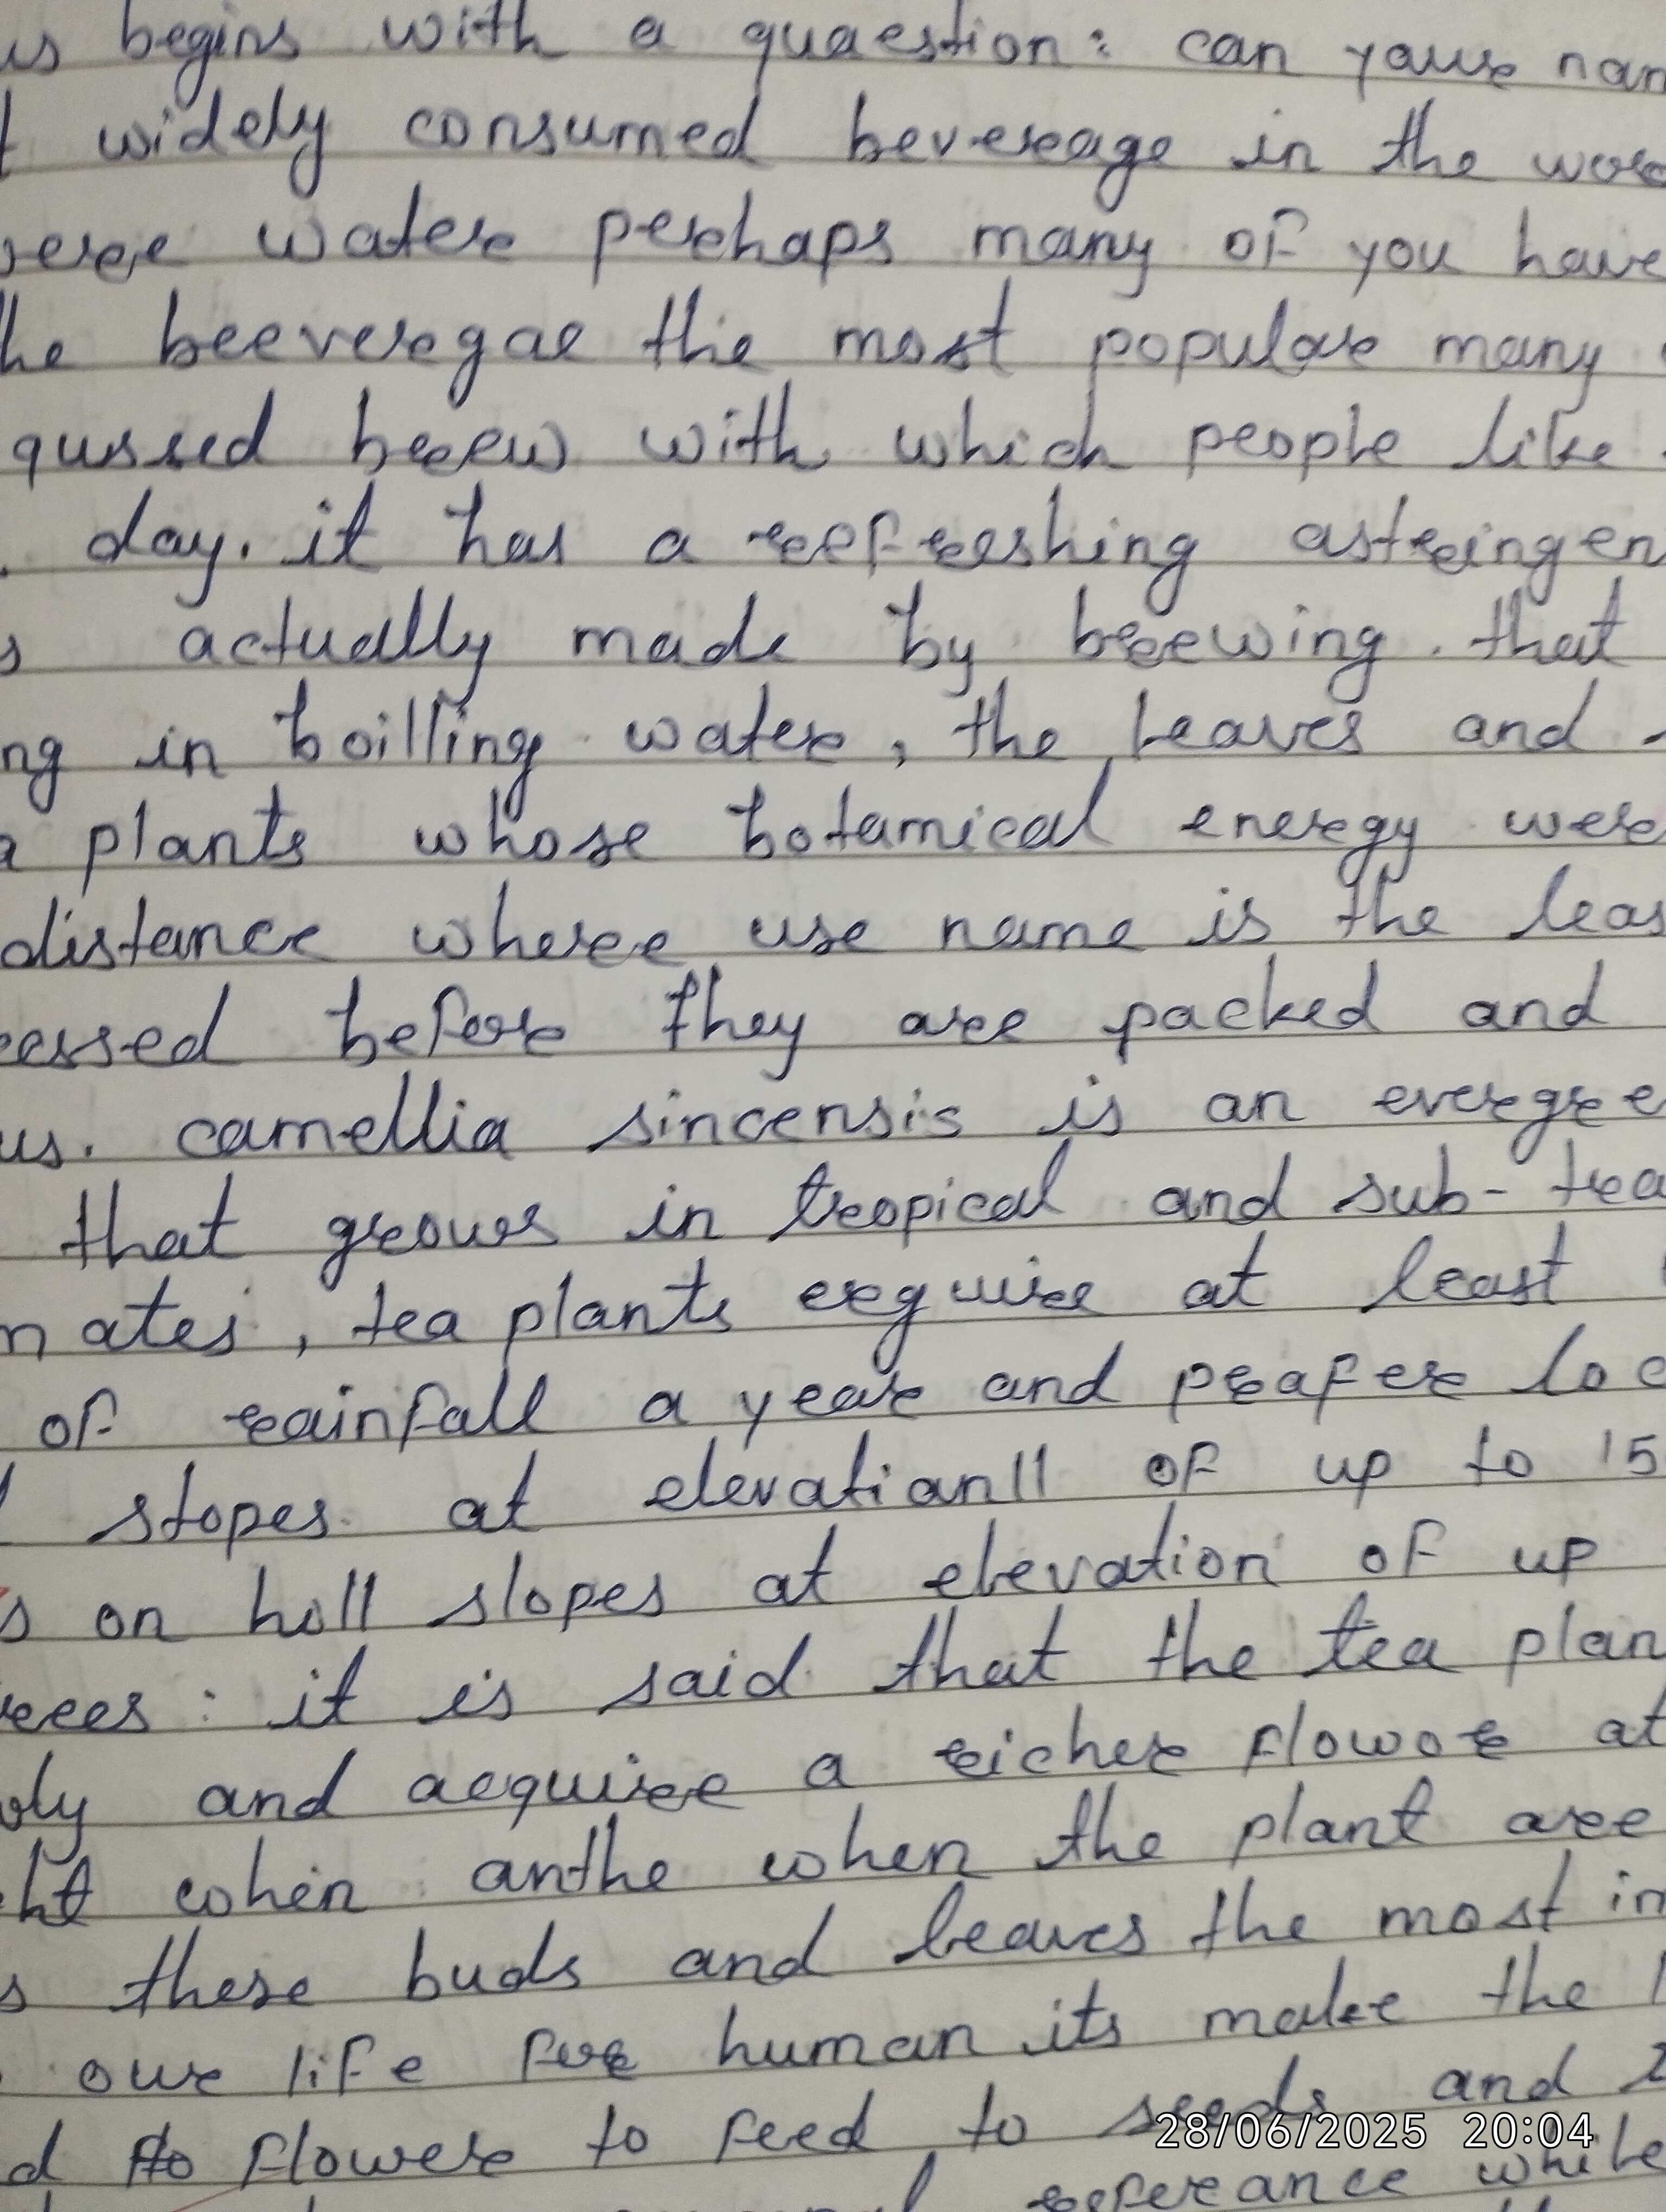 us begins with a quaestion: can your nam
t widely consumed bevereage in the wor
vere water perhaps many of you have
he beeveregae the most popular many
qussed breew with which people like
. day. it has a reefreeshing astreingen
s actually made by breewing. that
ng in boilling water, the leaves and
a plants whose botamical energy were
distance where use name is the leas
cessed before they are packed and
us. camellia sincensis is an evergree
that grows in tropical and sub- trea
mates, tea plants erquire at least
of rainfall a year and prafer loc
l stopes at elevatianll of up to 15
s on holl slopes at elevation of up
rees: it is said that the tea plan
oly and acquire a richer flowor at
ht when anthe when the plant are
s these buds and leaves the most in
our life for human its make the
d to flower to feed to seeds and
while
28/06/2025 20:04